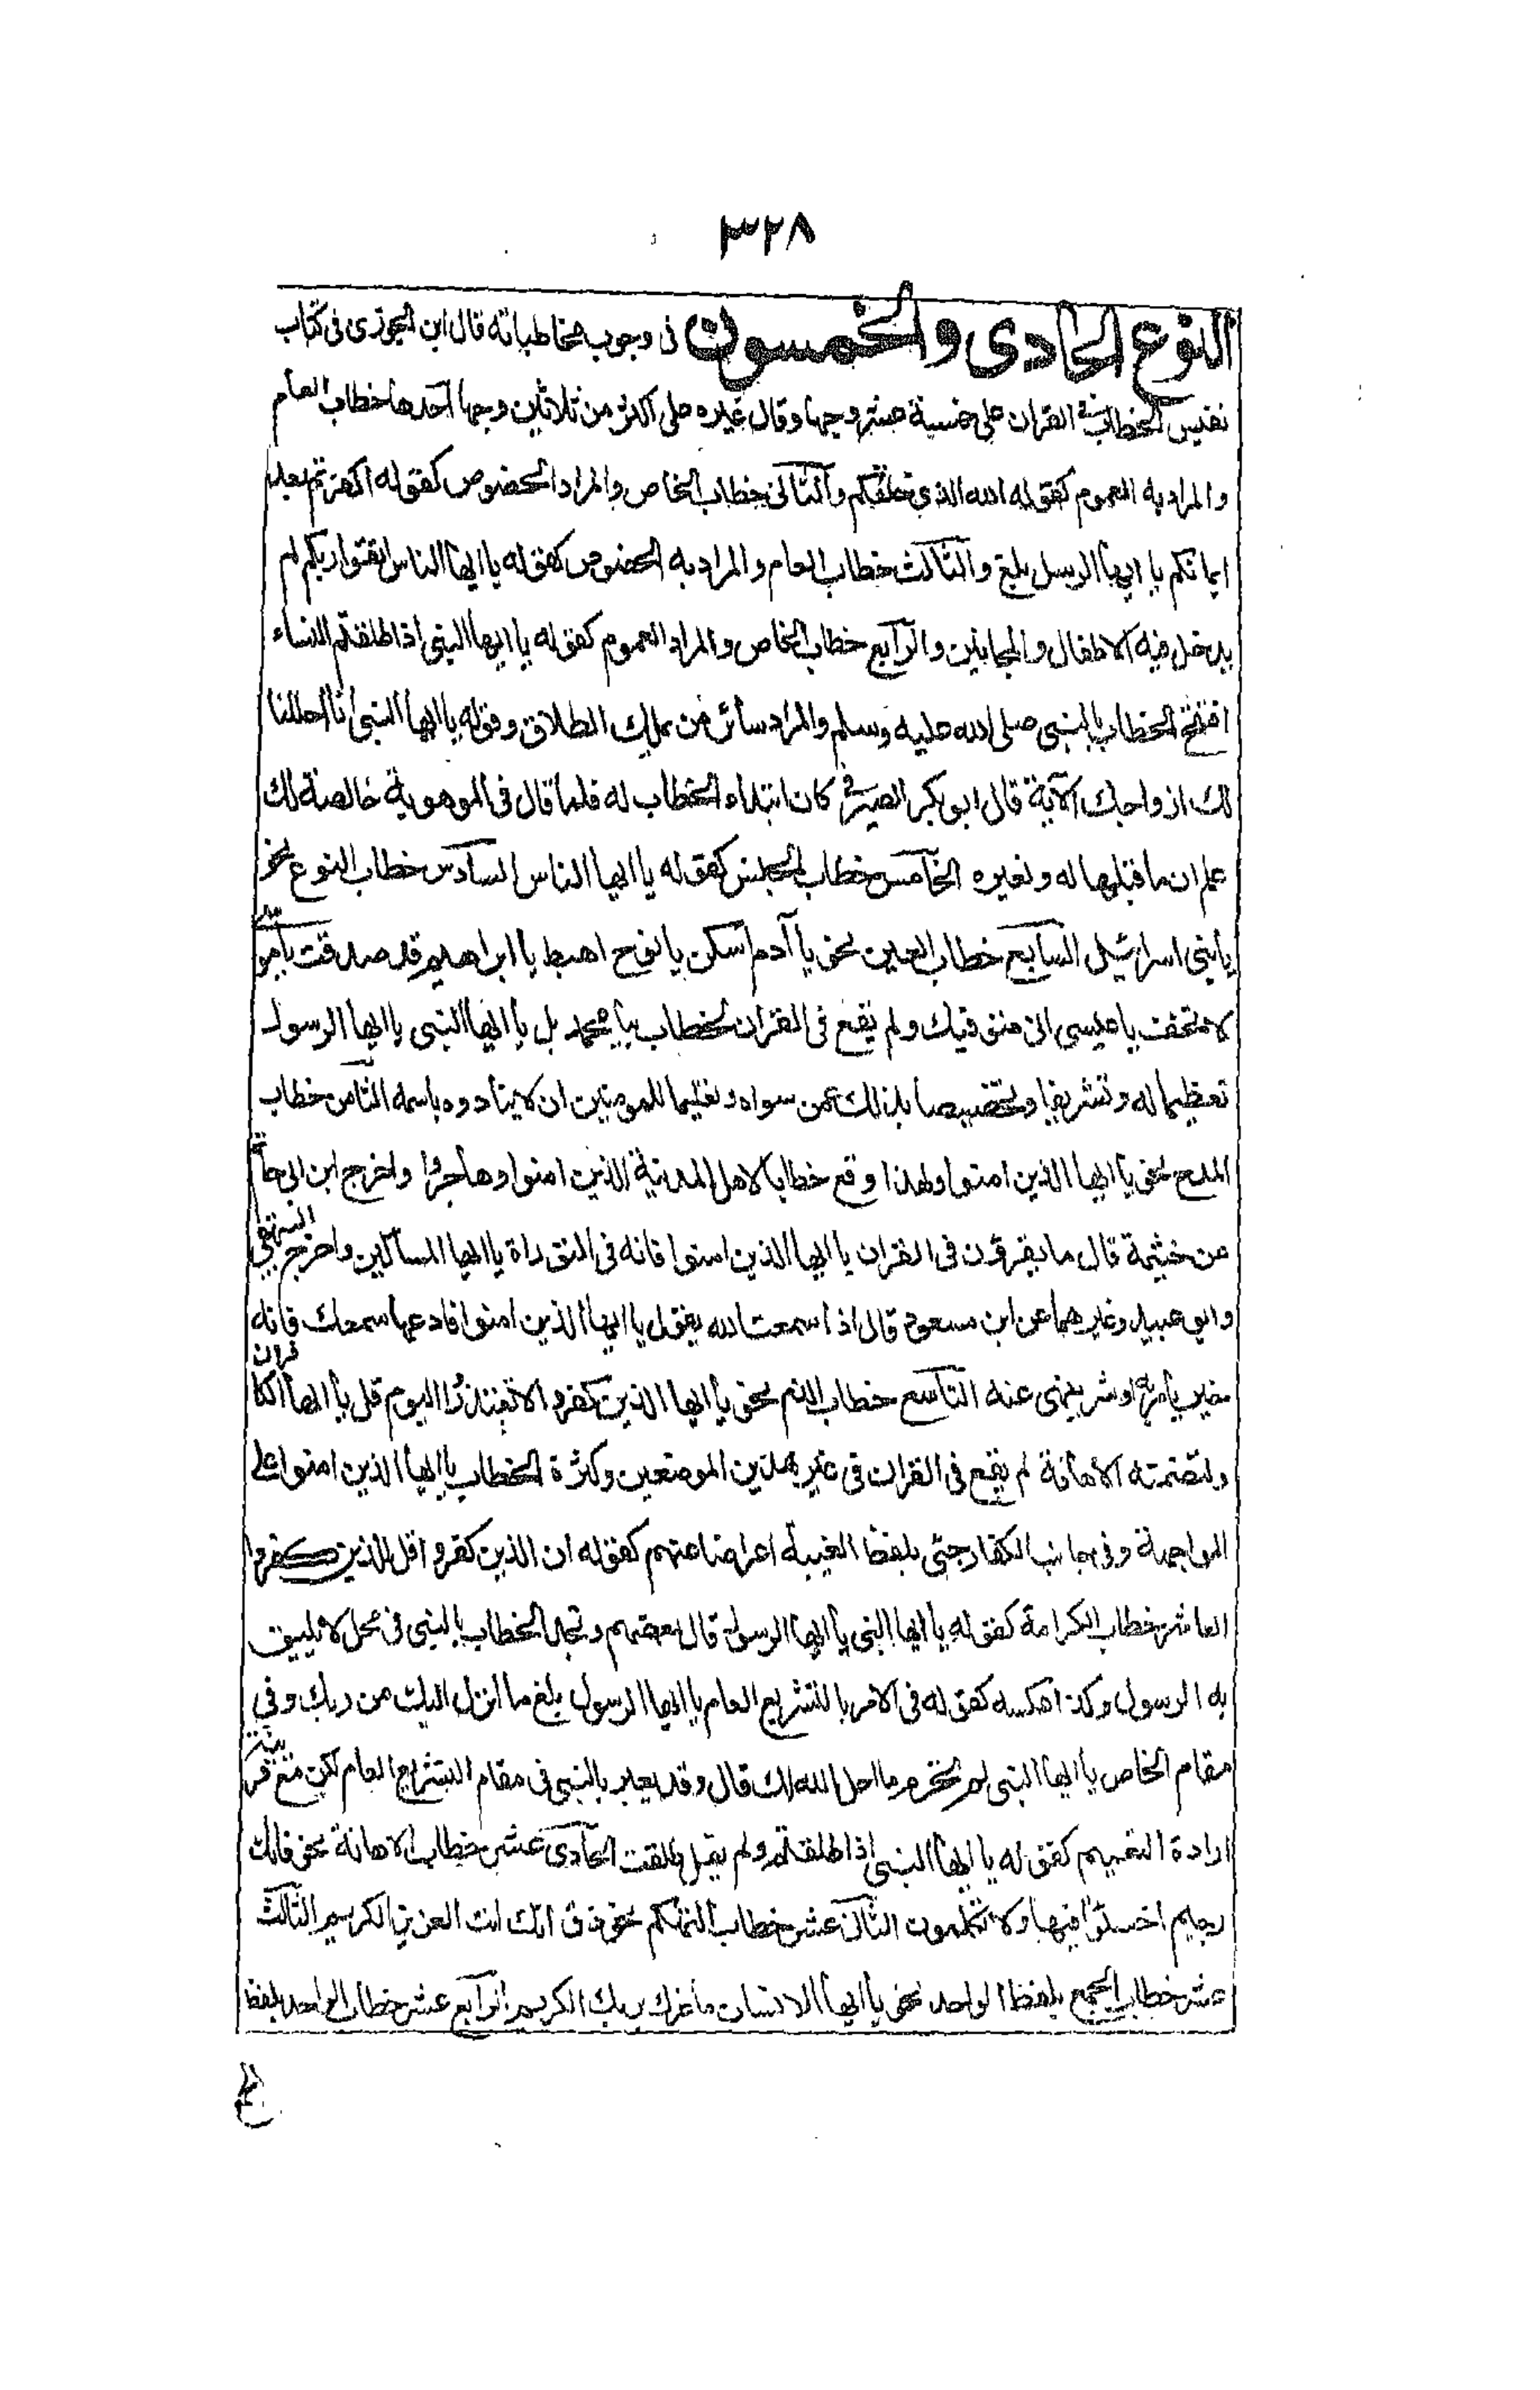 ٣٢٨
النوع الحادى والخمسون فى وجوب مخاطباته قال ابن الجوزى فى كتاب
نفيس الخطاب فى القران على خمسة عشر وجها وقال غيره على اكثر من ثلاثين وجها احدها خطاب العام
والمراد به العموم كقوله الله الذى خلقكم والثانى خطاب الخاص والمراد الخصوص كقوله اكفرتم بعد
ايمانكم يا ايها الرسل بلغ والثالث خطاب العام والمراد به الخصوص كقوله يا ايها الناس اتقوا ربكم لم
يدخل فيه الاطفال والمجانين والرابع خطاب الخاص والمراد العموم كقوله يا ايها النبى اذا طلقتم النساء
افتتح الخطاب بالنبى صلى الله عليه وسلم والمراد سائر من يملك الطلاق وقوله يا ايها النبى انا احللنا
لك ازواجك الآية قال ابو بكر الصيرفى كان ابتداء الخطاب له فلما قال فى الموهوبة خالصة لك
علم ان ما قبلها له ولغيره الخامس خطاب الجنس كقوله يا ايها الناس السادس خطاب النوع نحو
يا بنى اسرائيل السابع خطاب العين نحو يا آدم اسكن يا نوح اهبط يا ابراهيم قد صدقت يا موسى
لا تخف يا عيسى انى متوفيك ولم يقع فى القران الخطاب بيا محمد بل يا ايها النبى يا ايها الرسول
تعظيما له وتشريفا وتخصيصا بذلك عمن سواه وتعليما للمومنين ان لا ينادوه باسمه الثامن خطاب
المدح نحو يا ايها الذين امنوا ولهذا وقع خطابا لاهل المدينة الذين امنوا وهاجروا واخرج ابن ابى حاتم
عن خيثمة قال ما يقرؤن فى القران يا ايها الذين امنوا فانه فى التوراة يا ايها المساكين واخرج البيهقى
وابو عبيد وغيرهما عن ابن مسعود قال اذا سمعت الله يقول يا ايها الذين امنوا فادعها سمعك فانه
خير يأمر به او شر ينهى عنه التاسع خطاب الذم نحو يا ايها الذين كفروا لا تعتذروا اليوم قل يا ايها الكافرون
ولتضمنه الاهانة لم يقع فى القران فى غير هذين الموضعين وكثرة الخطاب يا ايها الذين امنوا على
المواجهة وفى جانب الكفار جئ بلفظ الغيبة اعراضا عنهم كقوله ان الذين كفروا قل للذين كفروا
العاشر خطاب الكرامة كقوله يا ايها النبى يا ايها الرسول قال بعضهم وتجد الخطاب بالنبى فى محل لا يليق
به الرسول وكذا عكسه كقوله فى الامر بالتشريع العام يا ايها الرسول بلغ ما انزل اليك من ربك وفى
مقام الخاص يا ايها النبى لم تحرم ما احل الله لك قال وقد يعبر بالنبى فى مقام التشريع العام لكن مع قرينة
ارادة التعميم كقوله يا ايها النبى اذا طلقتم ولم يقل طلقت الحادى عشر خطاب الاهانة نحو فانك
رجيم اخسئوا فيها ولا تكلمون الثانى عشر خطاب التهكم نحو ذق انك انت العزيز الكريم الثالث
عشر خطاب الجمع بلفظ الواحد نحو يا ايها الانسان ما غرك بربك الكريم الرابع عشر خطاب الواحد بلفظ